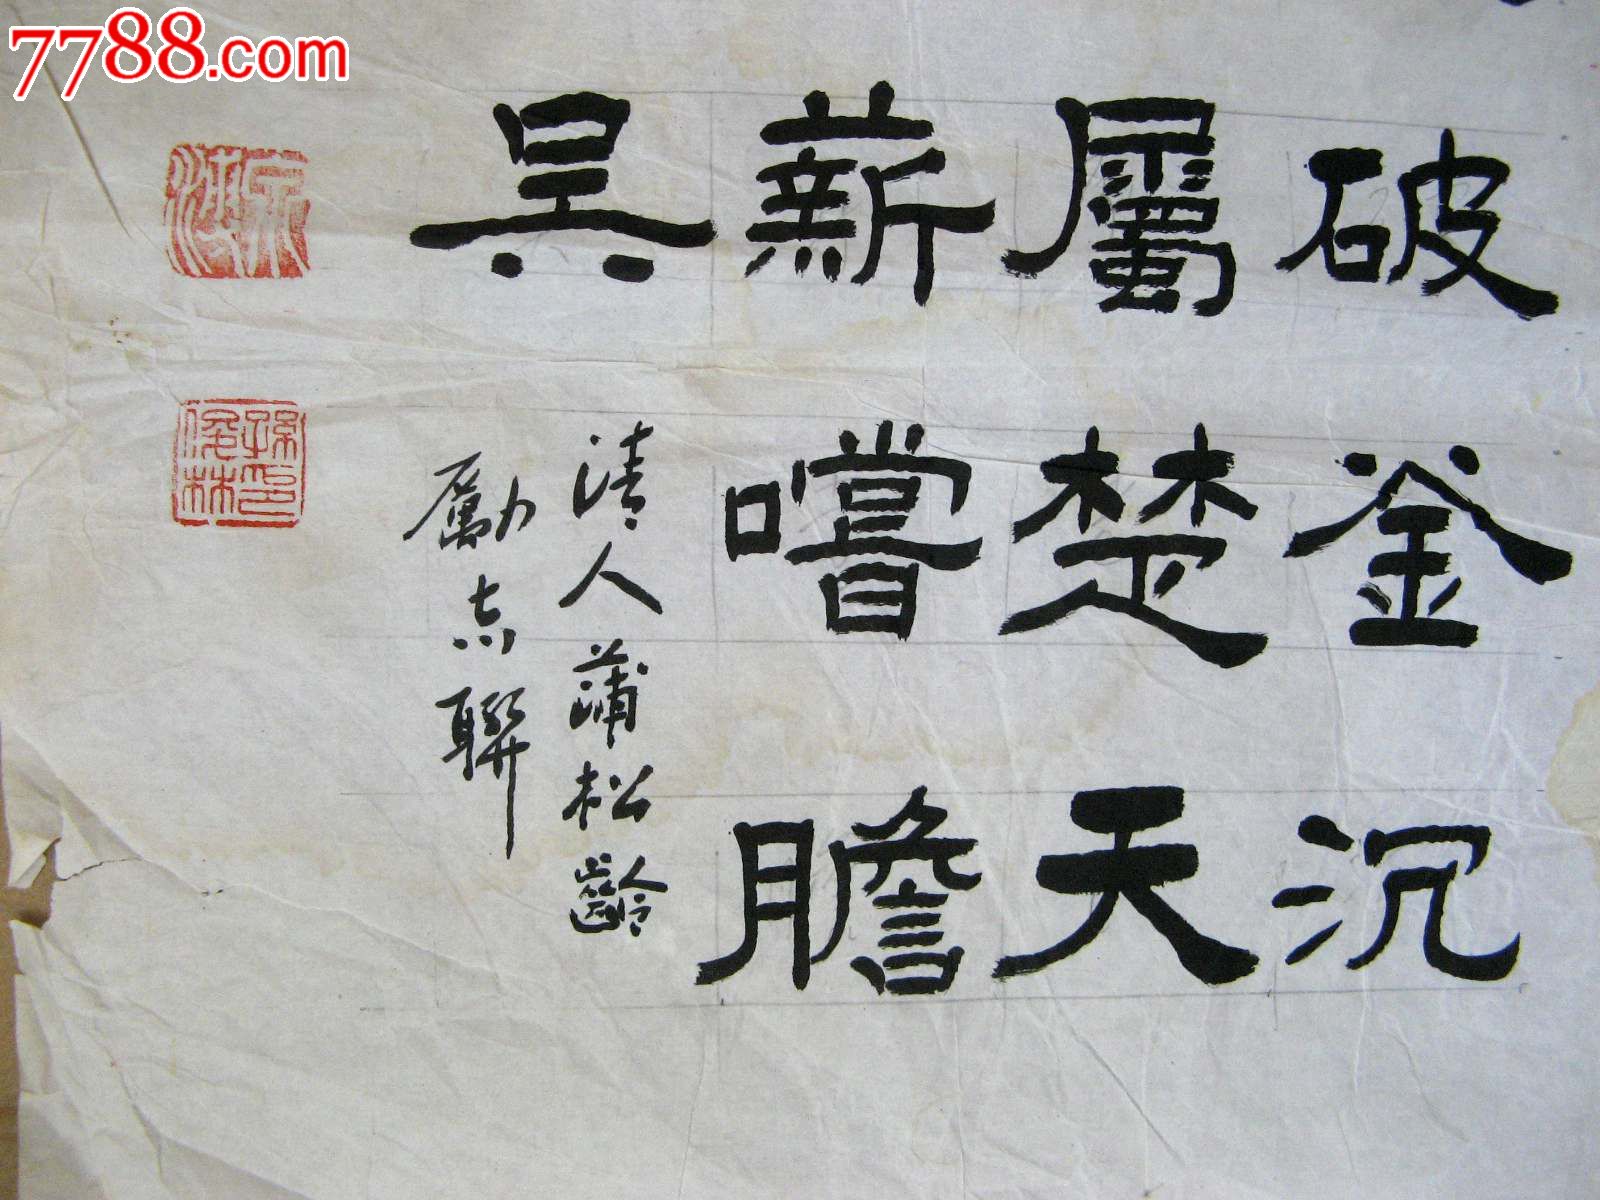 7788.com
破釜沉
屬楚天
薪嘗膽
吳
清人蒲松齡
勵志聯